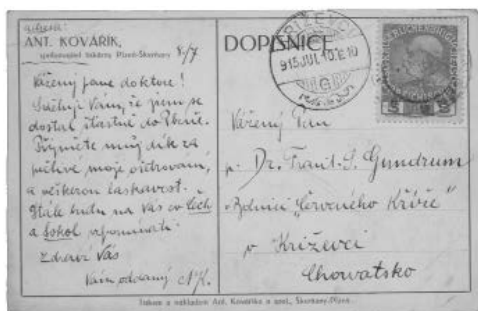 adresa:
ANT. KOVÁŘÍK,
spolumajitel tiskárny Plzeň-Skvrňany 8/7
Vážený pane doktore!
Sděluji Vám, že jsem se
dostal šťastně do Plzně.
Přijměte můj dík za
pečlivé moje ošetrování,
a veškerou laskavost.
Stále budu na Vás co lech
a Sokol vzpomínati.
Zdraví Vás
Vám oddaný AK.
DOPISNICE
KRIŽEVCI
915 JUL 10
G
Vážený Pan
p. Dr. Frant. S. Gundrum
v Zdnici "Červeného Kříže"
v Križevci
Chorvatsko
Tiskem a nákladem Ant. Kováříka a spol., Skvrňany-Plzeň.